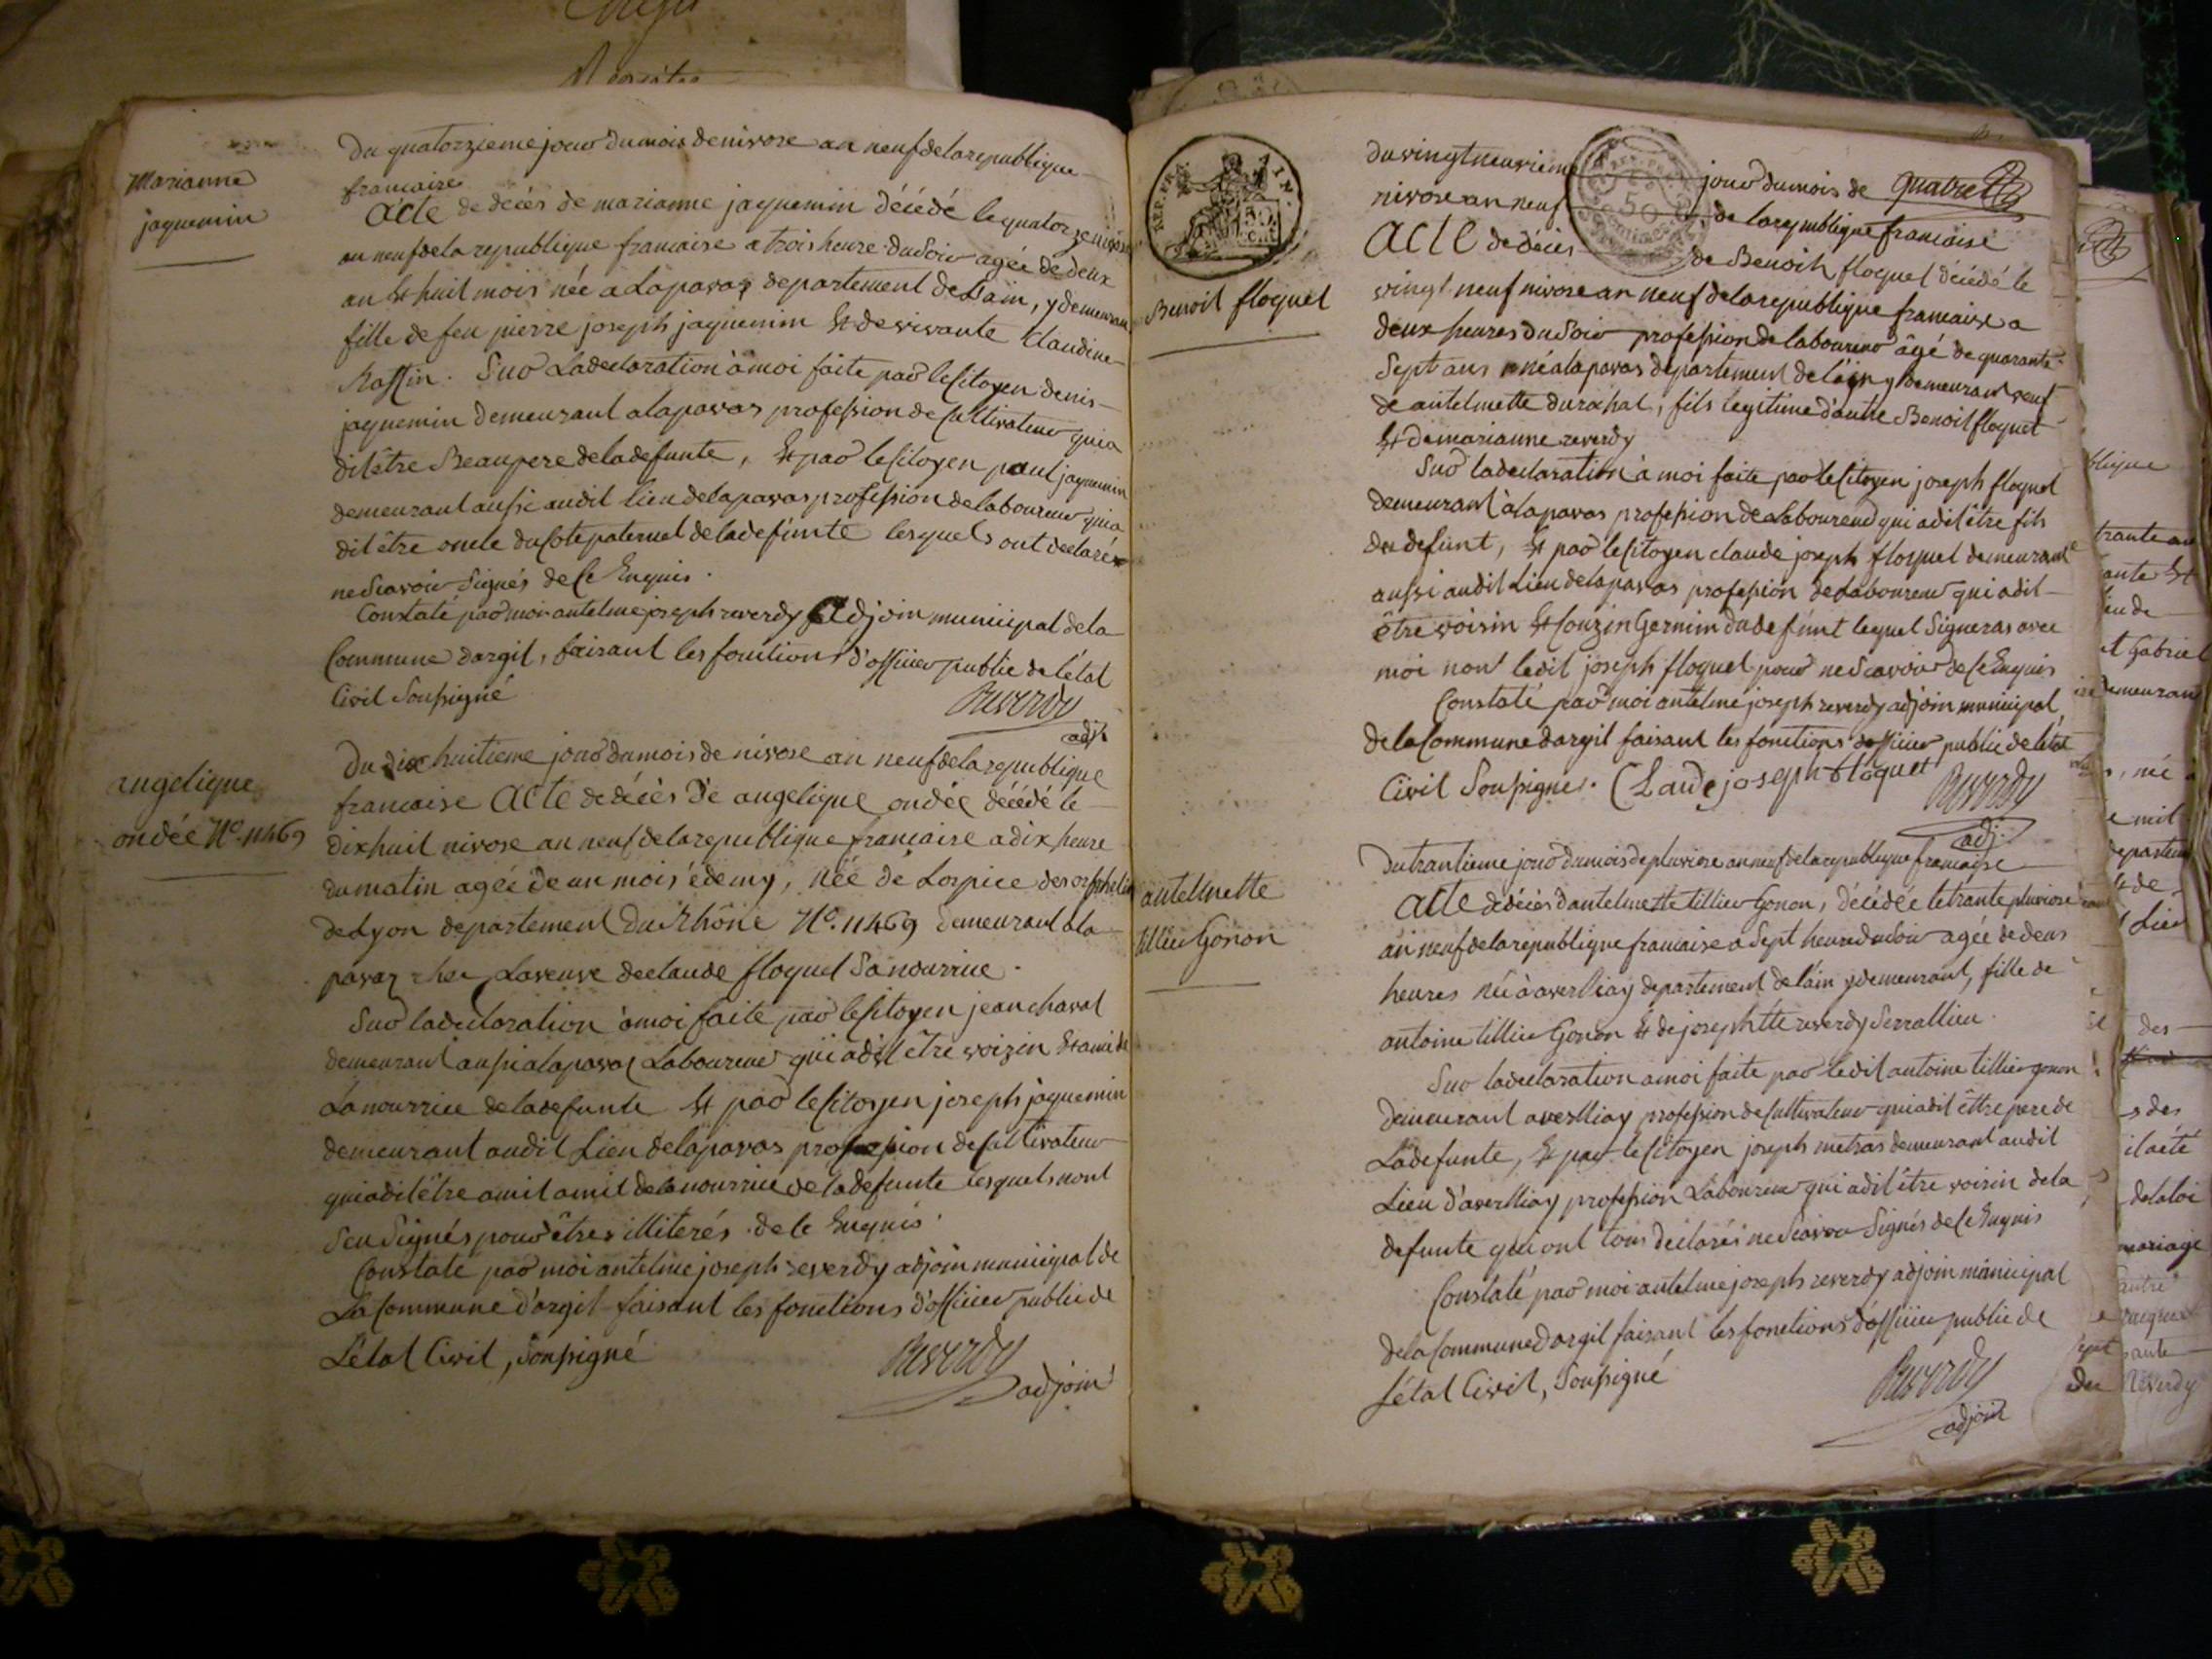 Marianne
jaquemin
Du quatorzieme jour du mois de nivose an neuf de la republique
francaise
Acte de décès de marianne jaquemin décédé le quatorze nivose
an neuf de la republique francaise a trois heure du Soir agée de deux
an & huit mois née a Lapavas departement de Lain, y demeurant
fille de feu pierre joseph jaquemin & de vivante Claudine
Sur La declaration à moi faite par le Citoyen denis
jaquemin demeurant a lapavas profession de Cultivateur qui a
dit être Beaupere de la defunte, & par le Citoyen paul jaquemin
demeurant aussi audit lieu de lapavas profession de laboureur qui a
dit être oncle du Coté paternel de la defunte lesquels ont declaré
ne Scavoir Signés de Ce Enquis.
Constaté par moi antelme joseph reverdy Adjoin municipal de la
Commune dargit, faisant les fonctions d'officier public de l'état
Civil Soussigné
Reverdy
adj.
angelique
ondée N°. 11469
Du dix huitieme jour du mois de nivose an neuf de la republique
francaise Acte de décès de angelique ondée décédé le
dix huit nivose an neuf de la republique francaise a dix heure
du matin agée de un mois é demy, née de Lospice des orphelin
de Lyon departement Du Rhône N°. 11469 demeurant a la
pavaz chez La veuve de claude floquet Sa nourrice.
Sur la declaration à moi faite par le Citoyen jean chaval
demeurant aussi a lapavas Laboureur qui a dit être voizin & ami de
La nourrice de la defunte & par le Citoyen joseph jaquemin
demeurant audit Lieu de lapavas profession de Cultivateur
qui a dit être amit amit de la nourrice de la defunte lesquels n'ont
Seu Signés pour être illiterés de Ce Enquis.
Constaté par moi antelme joseph reverdy adjoin municipal de
La Commune d'argit faisant les fonctions d'officier public de
L'état Civil, Soussigné
Reverdy
adjoin
REP. FRA. AIN.
50
Benoit floquet
du vingt neuvieme jour du mois de quatre
nivose an neuf de la republique francaise
Acte de décès de Benoit floquet décédé le
vingt neuf nivose an neuf de la republique francaise a
deux heures du Soir profession de laboureur âgé de quarante
Sept ans né a lapavas departement de l'ain y demeurant veuf
de antelmette durochat, fils legitime d'autre Benoit floquet
& de marianne reverdy
Sur la declaration à moi faite par le Citoyen joseph floquet
demeurant à lapavas profession de Laboureur qui a dit être fils
du defunt, & par le Citoyen claude joseph floquet demeurant
aussi audit Lieu de lapavas profession de Laboureur qui a dit
être voisin & Couzin Germin du defunt lequel Signeras avec
moi non ledit joseph floquet pour ne Scavoir de Ce Enquis
Constaté par moi antelme joseph reverdy adjoin municipal
de la Commune dargit faisant les fonctions d'officier public de l'etat
Civil Soussigné. Claude joseph floquet
Reverdy
adj.
antelmette
tillier Gonon
Du trantieme jour du mois de pluviose an neuf de la republique francaise
Acte de décès d'antelmette tillier Gonon, décédée le trante pluviose
an neuf de la republique francaise a Sept heure du Soir agée de deux
heures née à averlliay departement de l'ain y demeurant, fille de
antoine tillier Gonon & de josephtte reverdy Serrallier.
Sur la declaration a moi faite par ledit antoine tillier gonon
demeurant averlliay profession de Cultivateur qui a dit être pere de
La defunte, & par le Citoyen joseph metras demeurant audit
Lieu d'averlliay profession Laboureur qui a dit être voisin de la
defunte qui ont tous declarés ne Scavoir Signés de Ce Enquis
Constaté par moi antelme joseph reverdy adjoin municipal
de la Commune dargit faisant les fonctions d'officier public de
L'état Civil, Soussigné
Reverdy
adjoin
blique
trante an
ante &
t Gabriel
demeurant
, né
e mil
departem
& de
Lieu
des
s des
il a été
de la loi
mariage
Reverdy